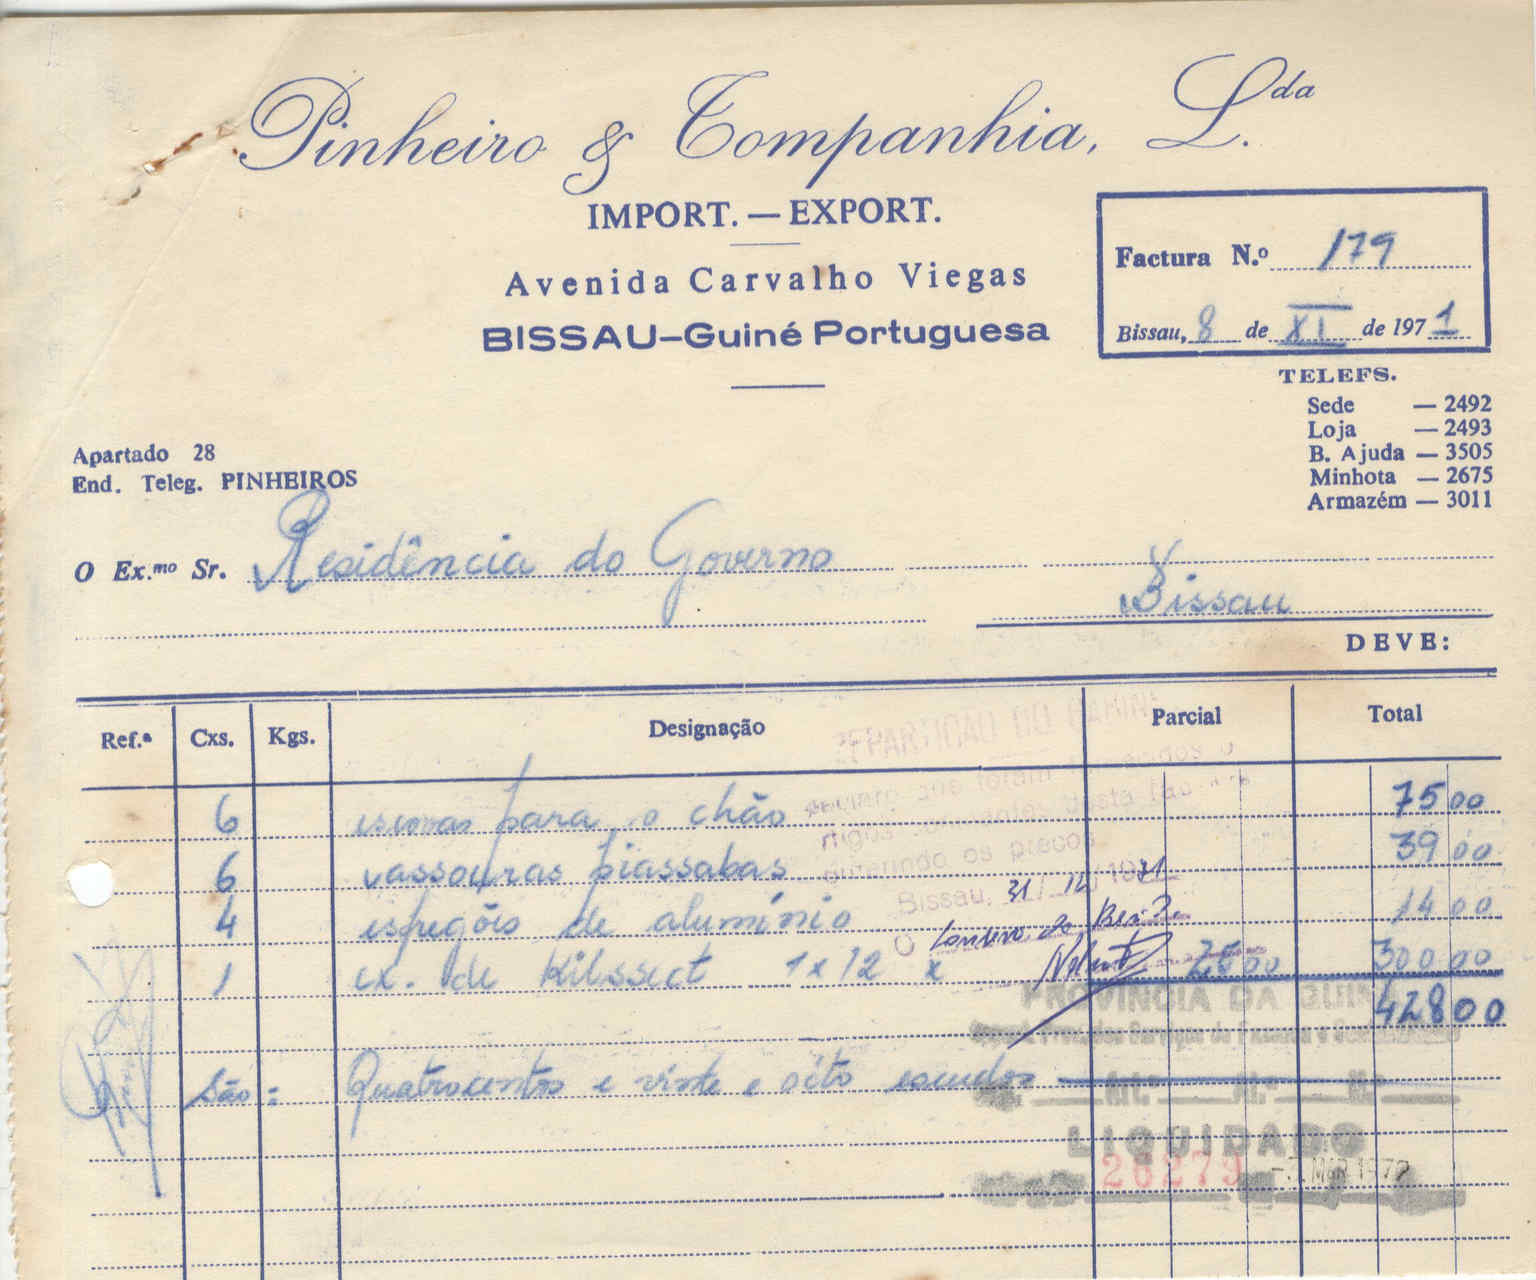 Pinheiro & Companhia, L.da
IMPORT. — EXPORT.
Avenida Carvalho Viegas
BISSAU—Guiné Portuguesa
Factura N.º 179
Bissau, 8 de XI de 1971
TELEFS.
Sede — 2492
Loja — 2493
B. Ajuda — 3505
Minhota — 2675
Armazém — 3011
Apartado 28
End. Teleg. PINHEIROS
O Ex.mo Sr. Residência do Governo
Bissau
DEVE:
Ref.ª Cxs. Kgs. Designação Parcial Total
6 para o chão 75 00
6 vassouras piassabas 39 00
4 esfregões de alumínio 14 00
1 cx. de Kilssect 1x12 x 25 00 300 00
428 00
São: Quatrocentos e vinte e oito escudos
REPARTIÇÃO DO
que foram
os preços
Bissau, 31/12/1971
O
PROVINCIA DA GUINÉ
LIQUIDADO
26279 MAR 1972